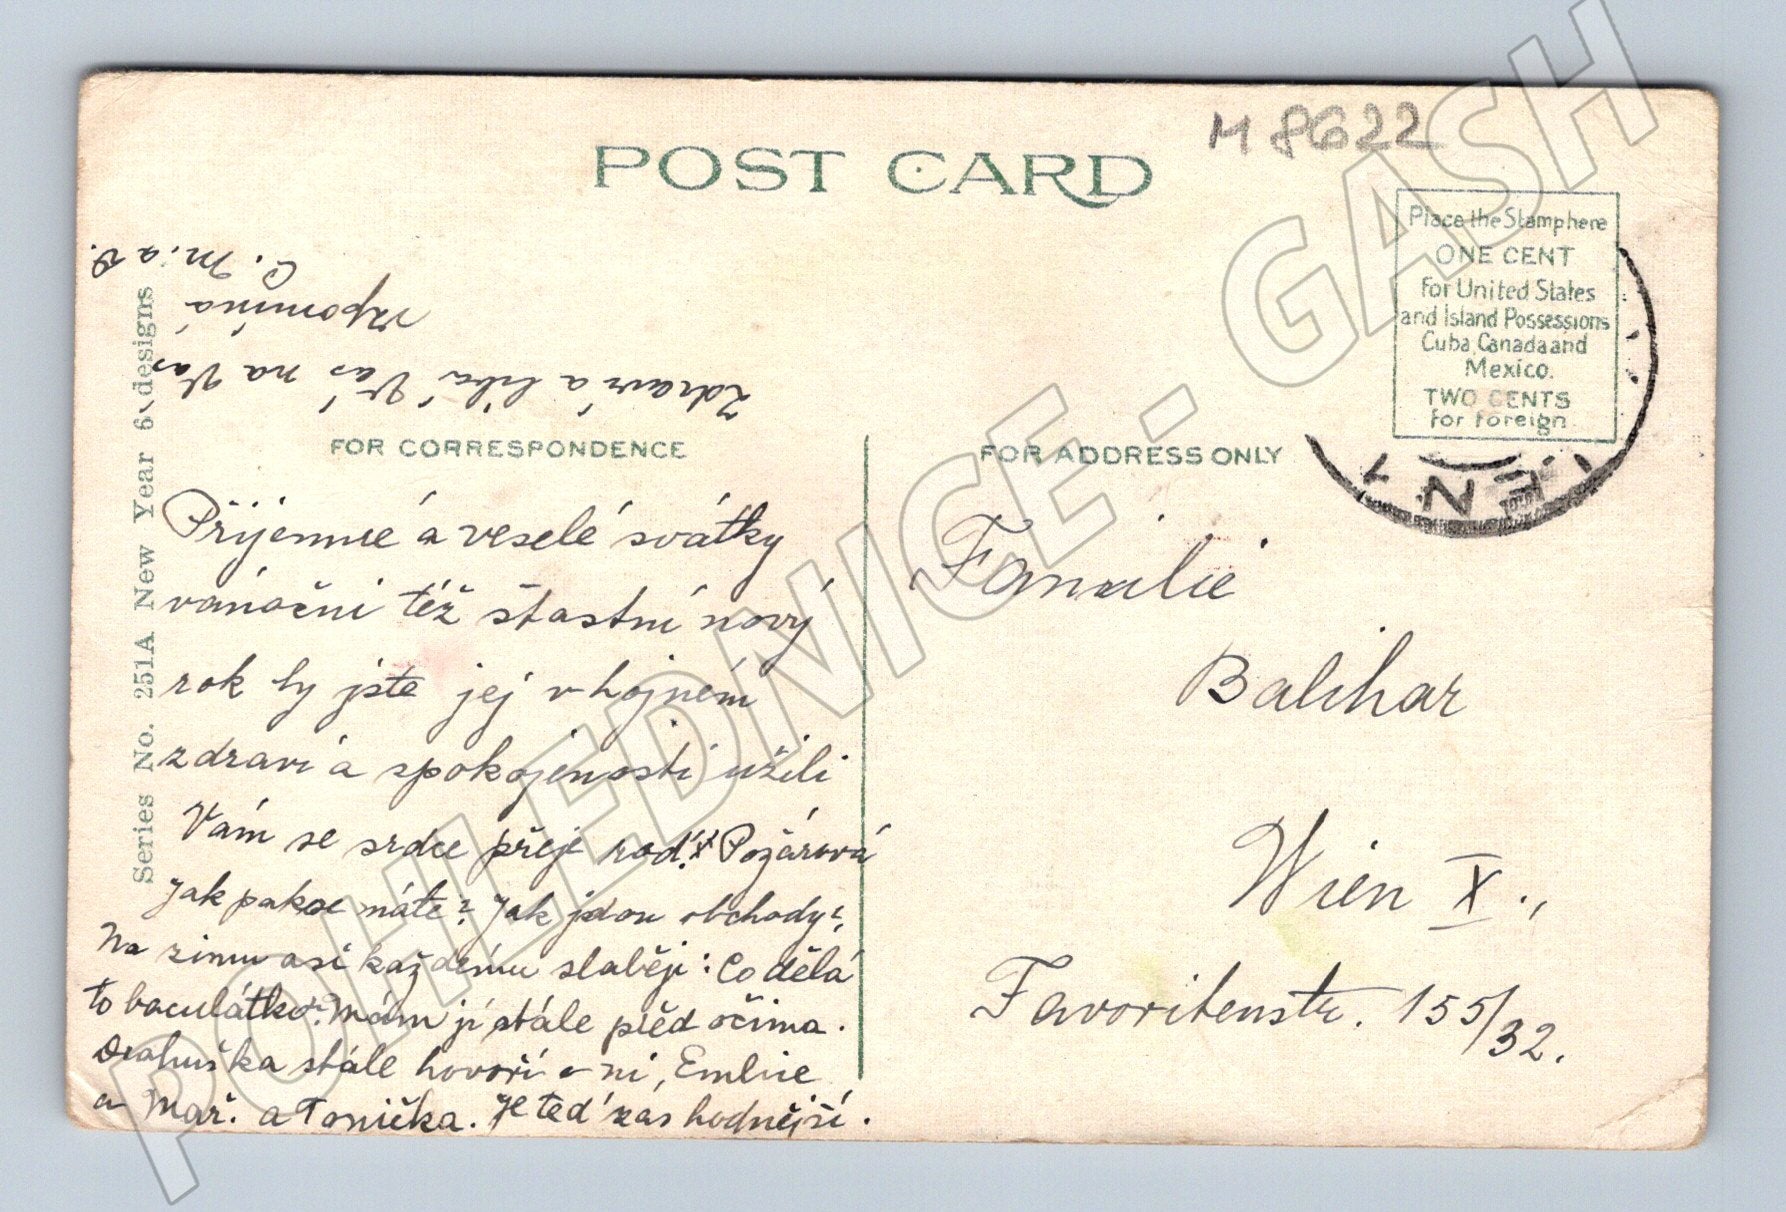 M 8622
POST CARD
Place the Stamp here
ONE CENT
For United States
and Island Possessions
Cuba, Canada and
Mexico.
TWO CENTS
For Foreign
IEN 1
Zdraví a líbá Vás na Vás
vzpomíná
Series No. 251A New Year 6 designs
FOR CORRESPONDENCE
FOR ADDRESS ONLY
Příjemné a veselé svátky
vánoční též štastní nový
rok by jste jej v hojném
zdraví a spokojenosti užili
Vám se srdce přeje rod. Požárová
Jak pak se máte? Jak jdou obchody?
Na zimu asi každému slaběji: Co dělá
to baculátko? Mám jí stále před očima.
Drahuška stále hovoří o ní, Emlie
a Mař. a Tonička. Je teď zas hodnější.
Familie
Balihar
Wien X.,
Favoritenstr. 155/32.
POHLEDNICE - GASH